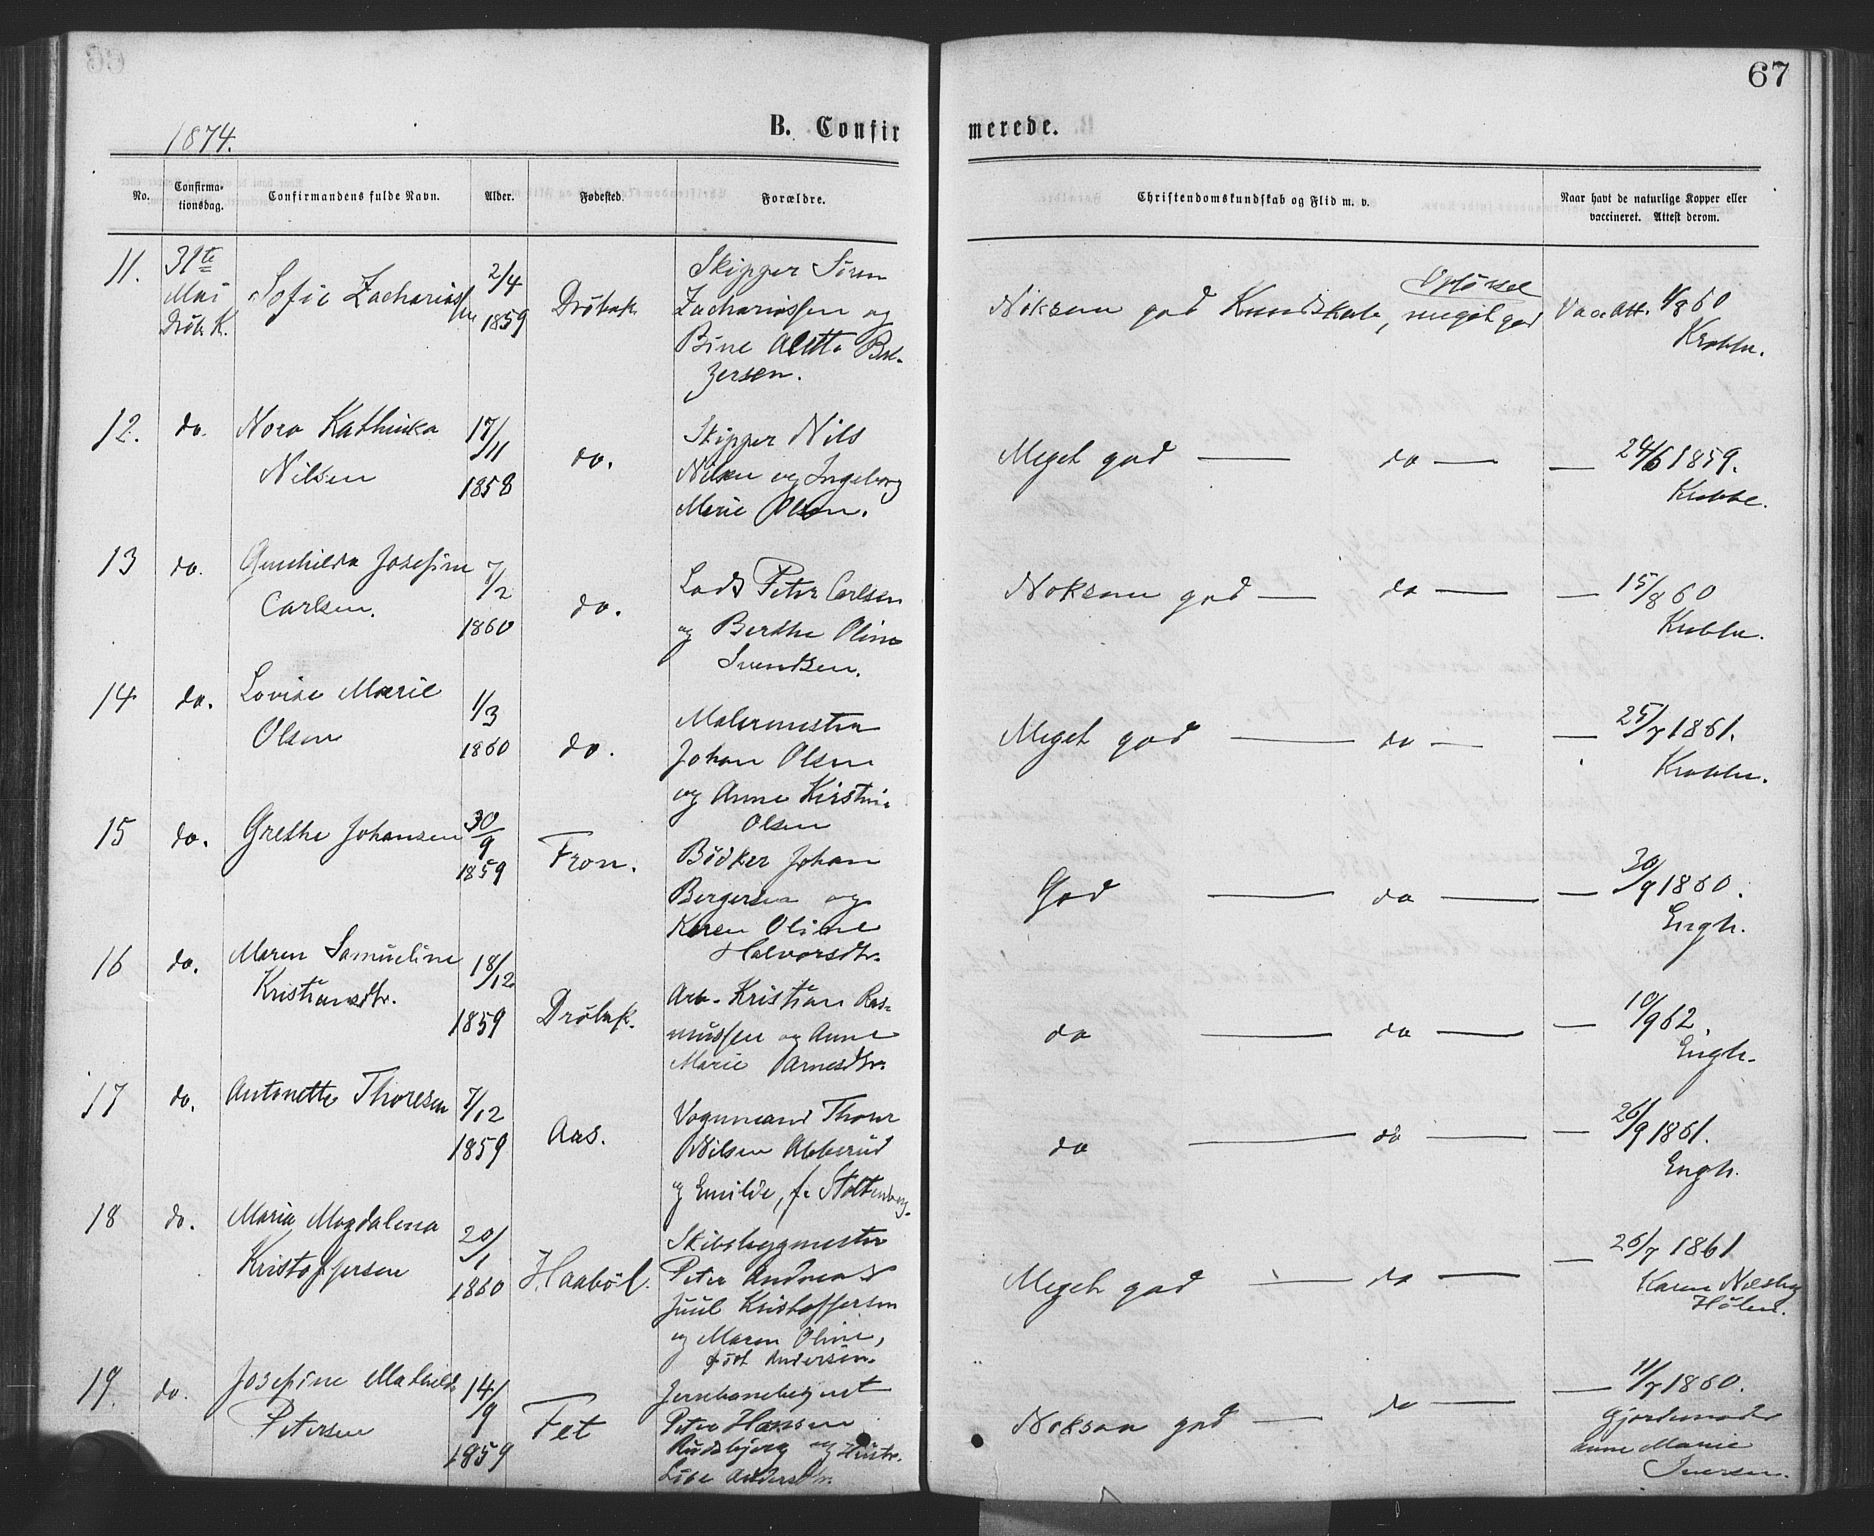 67
1874.
B. Confirmerede.
No. Confirmationsdag. Confirmandens fulde Navn. Alder. Fødested. Forældre. Christendomskundskab og Flid m. v. Naar havt de naturlige Kopper eller vaccineret. Attest derom.
11. 31te Mai Drøb. K. Sofie Zachariassen 2/4 1859 Drøbak Skipper Søren
Zachariassen og
Bine Aletta
Noksaa god Kundskab, Opførsel meget god Vac. Att. 4/8 60
Krabbe.
12. do. Nora Kathinka
Nilsen 17/11 1858 do. Skipper Nils
Nilsen og Ingeborg
Marie Olsen.
Meget god — do — — 24/6 1859.
Krabbe.
13 do. Gunhilda Josefine
Carlsen. 7/2 1860 do. Lods Peter Carlsen
og Berthe Oline
Svendsen.
Noksaa god — do — — 15/8 60
Krabbe.
14 do. Lovise Marie
Olsen 1/3 1860 do. Malermester
Johan Olsen
og Anne Kirstine
Olsen
Meget god — do — — 25/7 1861.
Krabbe.
15 do. Grethe Johansen 30/9 1859 Fron. Bødker Johan
Bergersen og
Karen Oline
Halvorsdtr.
God — do — — 30/9 1860.
Engh.
16 do. Maren Samueline
Kristiansdtr. 18/12 1859 Drøbak. Arb. Kristian Ras-
mussen og Anne
Marie Arnesdtr.
do — do — — 10/9 62.
Engh.
17 do. Antonette Thoresen 7/12 1859 Aas. Vognmand Thore
Nilsen Abberud
og Emilde, f. Stoltenberg.
do — do — — 26/9 1861.
Engh.
18 do. Maria Magdalena
Kristoffersen 20/1 1860 Haabøl. Skibsbygmester
Peter Andreas
Juul Kristoffersen
og Maren Oline,
født Andersen.
Meget god — do — — 26/7 1861
Karen
Hølen.
19. do. Josefine Mathilde
Petersen 14/9 1859 Fet Jernbanebetjent
Peter Hansen
Rudsbjerg og Hustr.
Lise Andersdtr.
Noksaa god — do — — 11/7 1860.
Gjordemoder
Anne Marie
Iversen.